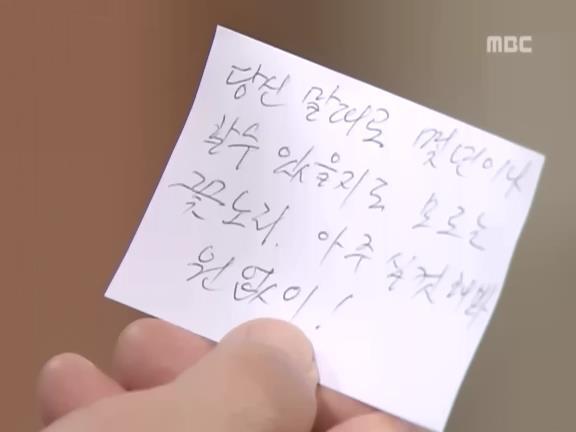 MBC
당신 말대로 몇년이나
할수 있을지도 모르는
꽃노래. 아주 실컷 해봐
원없이!